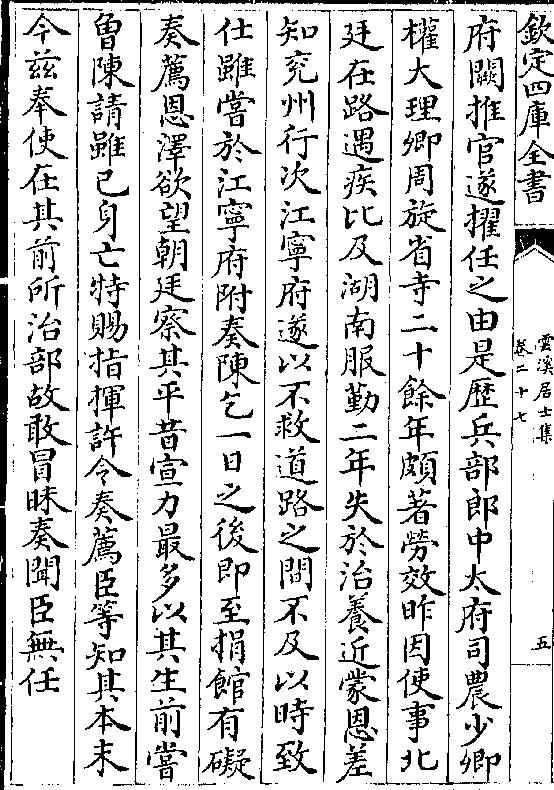 欽定四庫全書
雲溪居士集
卷二十七
五
府闕推官遂擢任之由是歷兵部郎中太府司農少卿
權大理卿周旋省寺二十餘年頗著勞效昨因使事北
廷在路遇疾比及湖南服勤二年失於治養近蒙恩差
知兖州行次江寧府遂以不救道路之間不及以時致
仕雖嘗於江寧府附奏陳乞一日之後即至捐館有礙
奏薦恩澤欲望朝廷察其平昔宣力最多以其生前嘗
曾陳請雖已身亡特賜指揮許令奏薦臣等知其本末
今兹奉使在其前所治部故敢冒昧奏聞臣無任